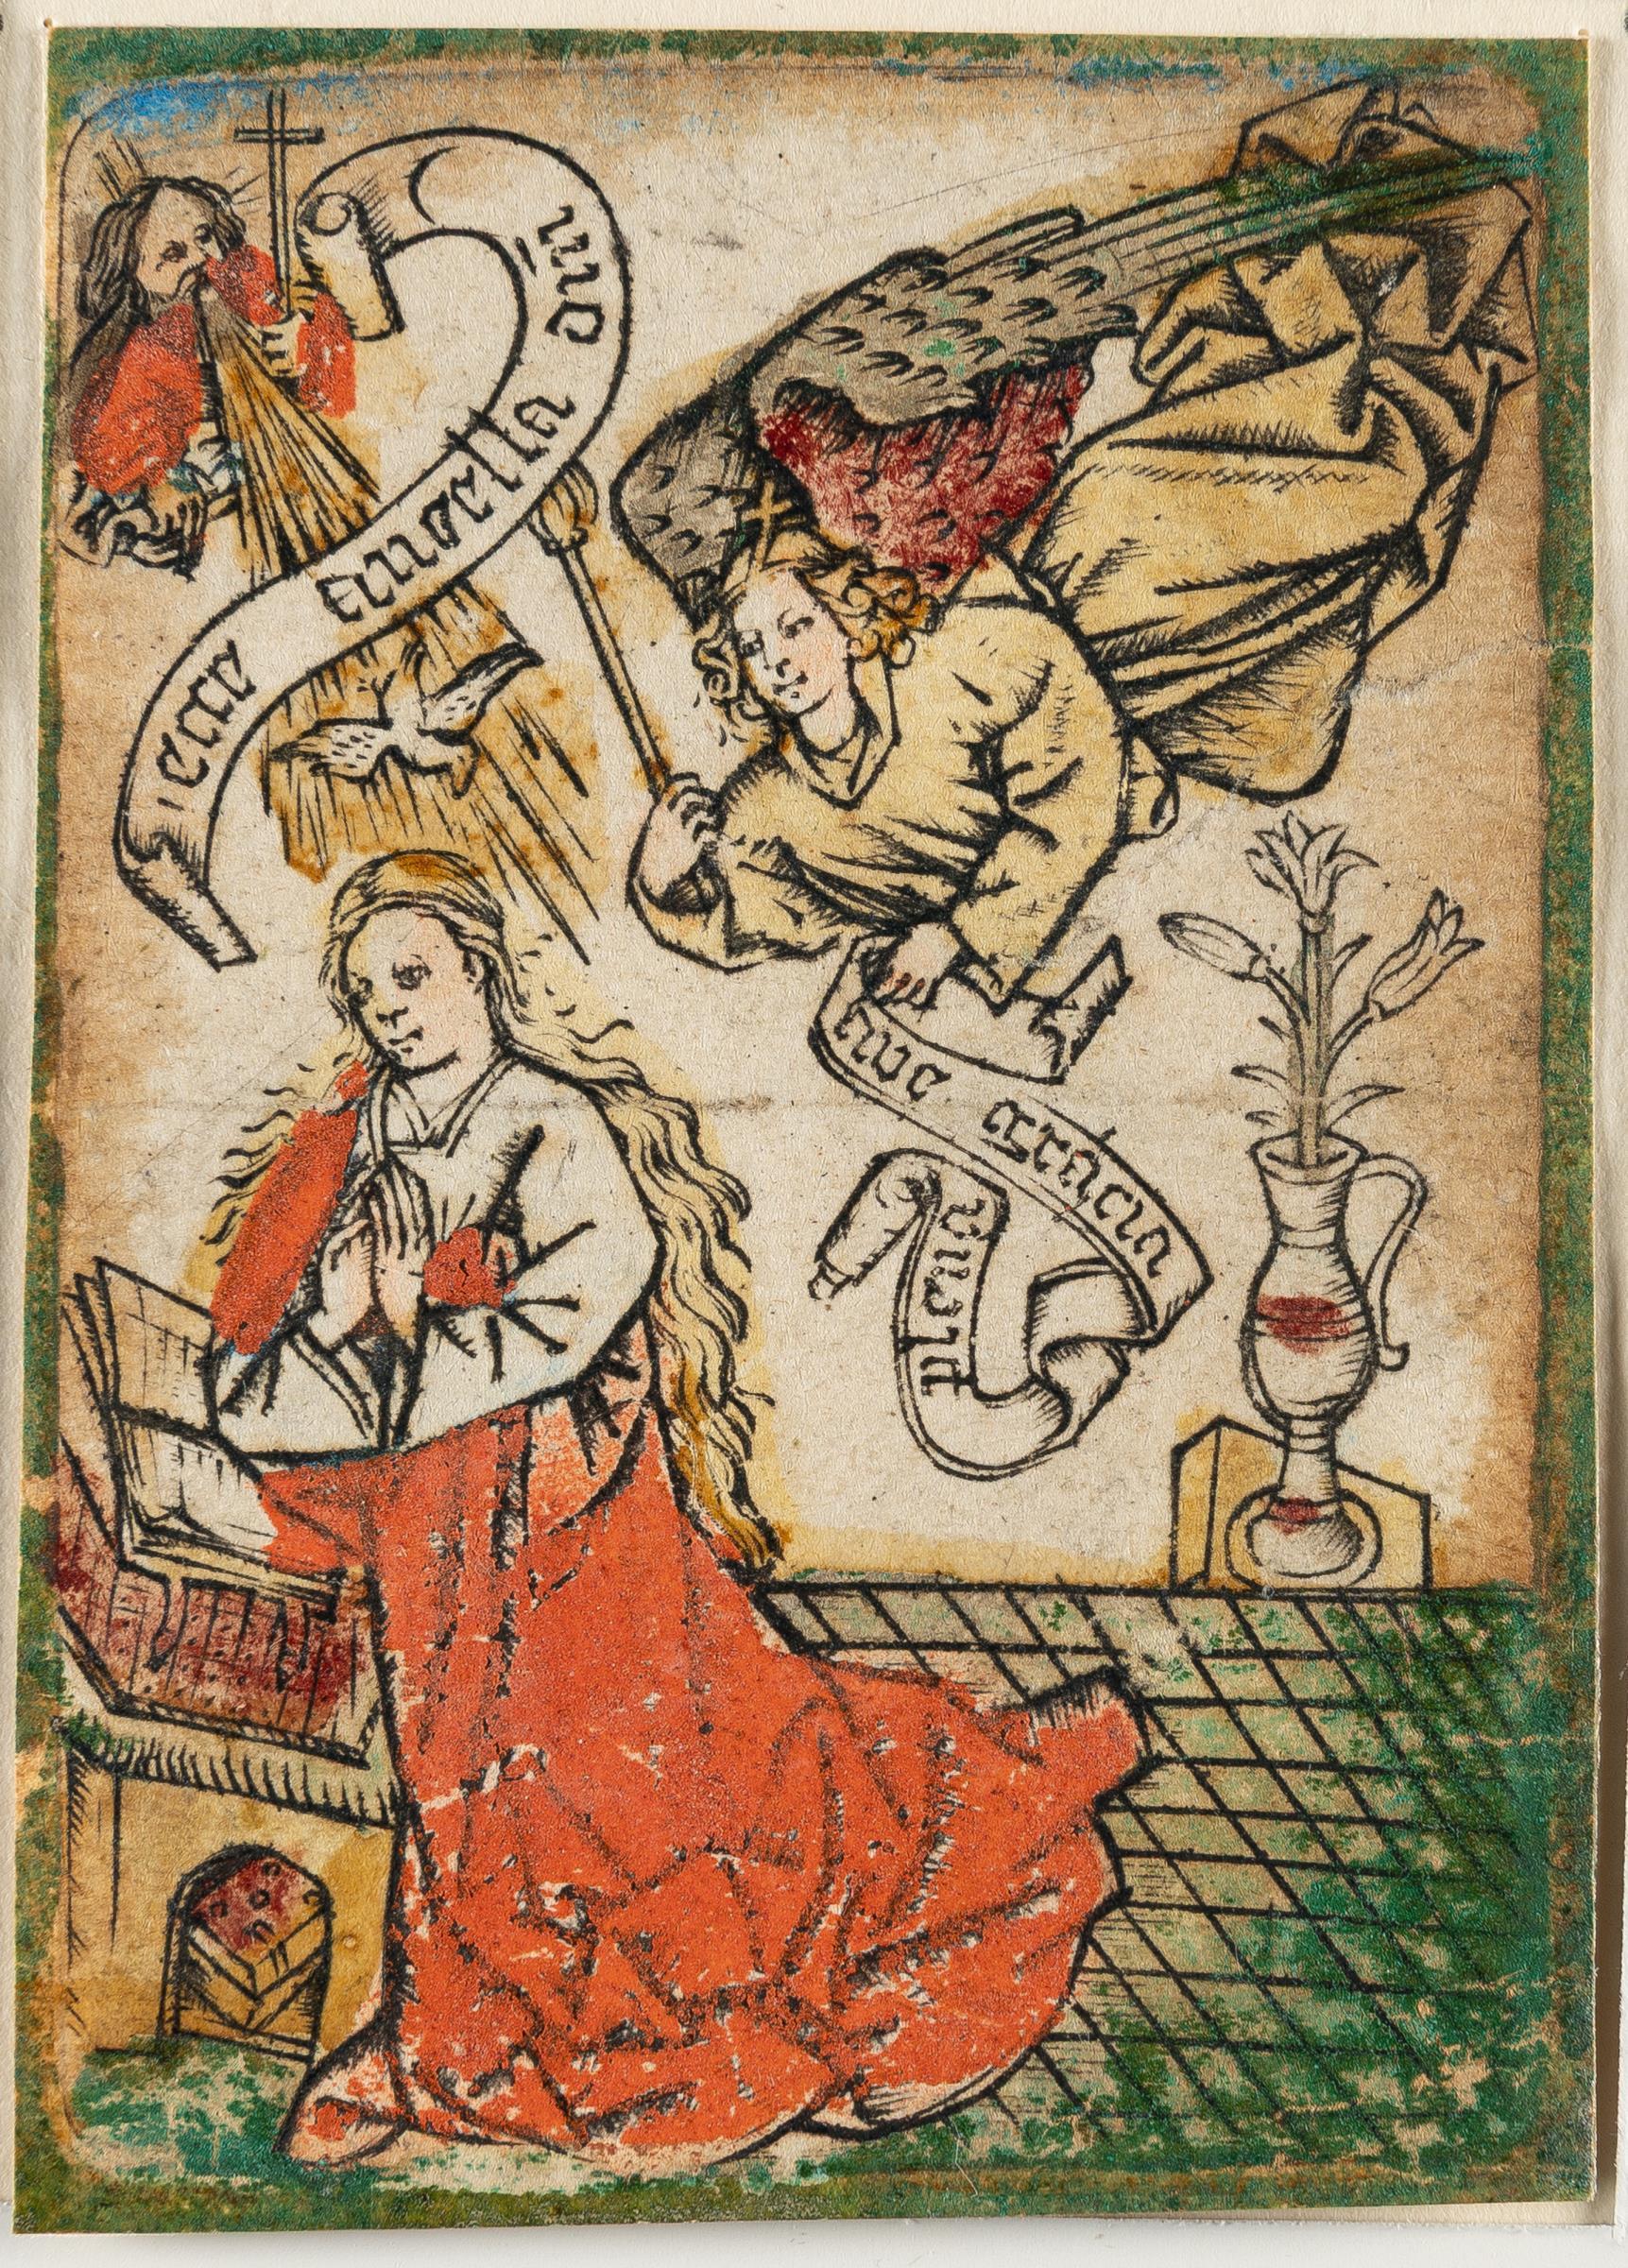 ecca ancella dn̄i
aue gracia
plena